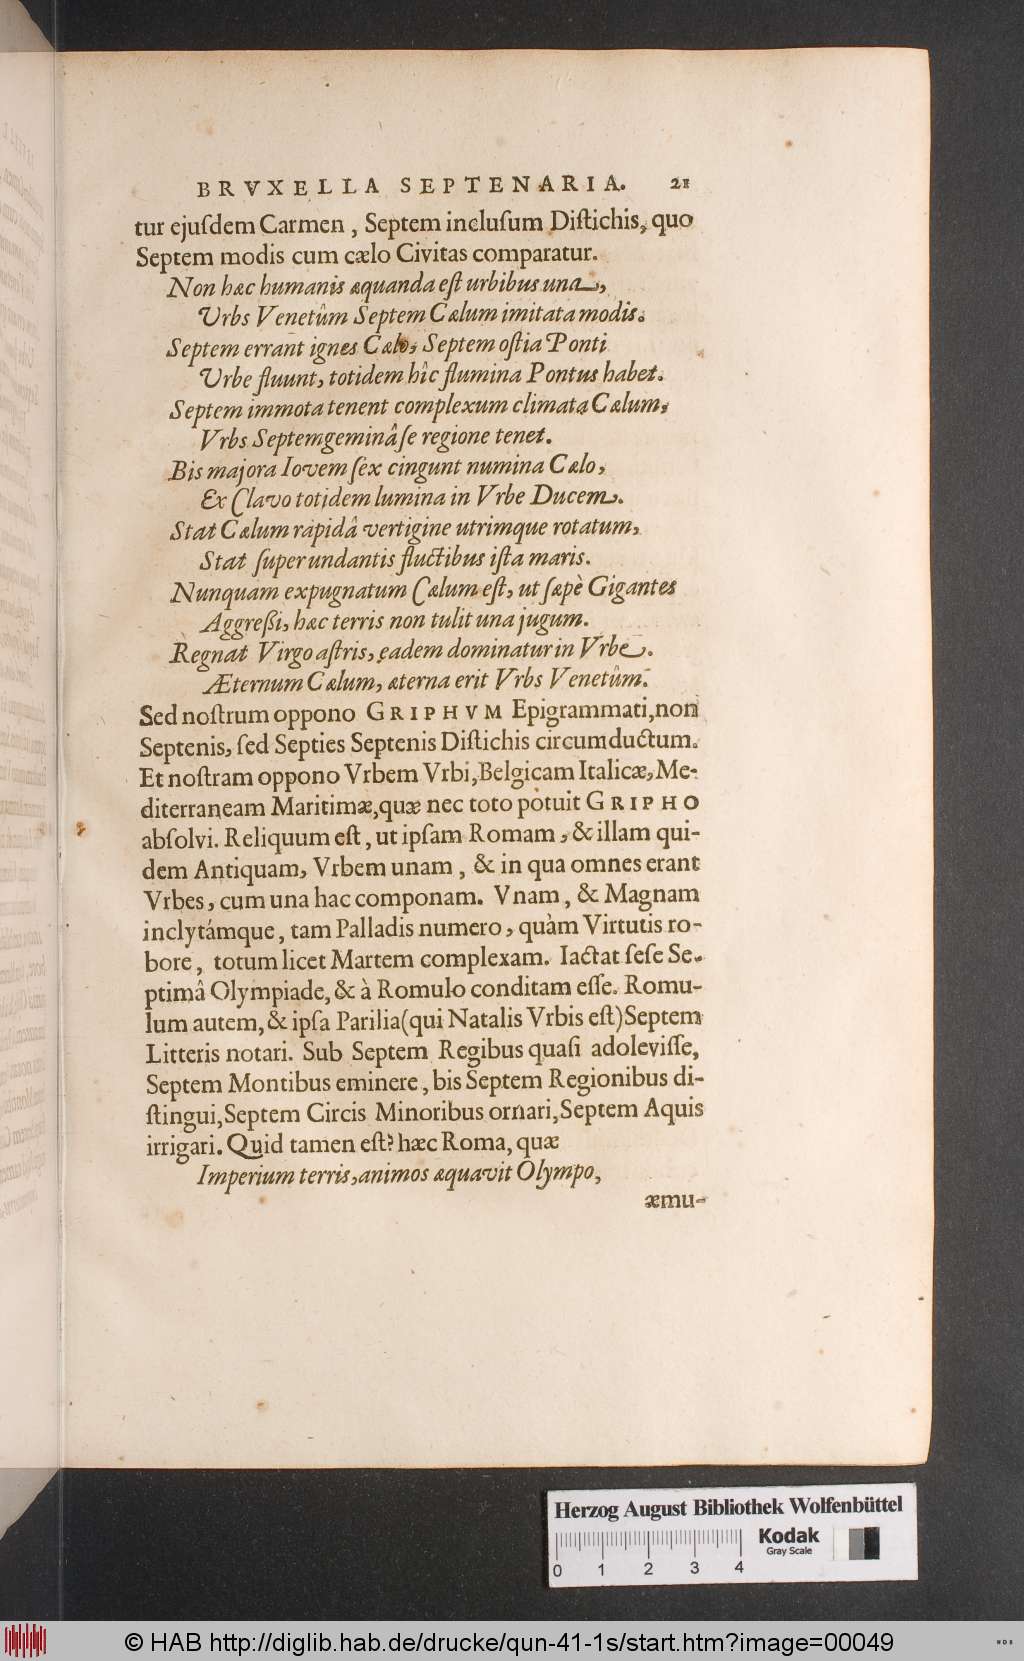 BRVXELLA SEPTENARIA. 21
tur ejuſdem Carmen, Septem incluſum Diſtichis, quo
Septem modis cum cælo Civitas comparatur.
Non hæc humanis æquanda eſt urbibus una,
Urbs Venetûm Septem Cælum imitata modis.
Septem errant ignes Cælo, Septem oſtia Ponti
Urbe fluunt, totidem hîc flumina Pontus habet.
Septem immota tenent complexum climata Cælum,
Vrbs Septemgeminâ ſe regione tenet.
Bis majora Iovem ſex cingunt numina Cælo,
Ex Clavo totidem lumina in Vrbe Ducem.
Stat Cælum rapidâ vertigine utrimque rotatum,
Stat ſuper undantis fluctibus iſta maris.
Nunquam expugnatum Cælum eſt, ut ſæpè Gigantes
Aggreßi, hæc terris non tulit una jugum.
Regnat Virgo aſtris, eadem dominatur in Vrbe.
Æternum Cælum, æterna erit Vrbs Venetûm.
Sed noſtrum oppono GRIPHVM Epigrammati, non
Septenis, ſed Septies Septenis Diſtichis circumductum.
Et noſtram oppono Vrbem Vrbi, Belgicam Italicæ, Me-
diterraneam Maritimæ, quæ nec toto potuit GRIPHO
abſolvi. Reliquum eſt, ut ipſam Romam, & illam qui-
dem Antiquam, Vrbem unam, & in qua omnes erant
Vrbes, cum una hac componam. Vnam, & Magnam
inclytámque, tam Palladis numero, quàm Virtutis ro-
bore, totum licet Martem complexam. Iactat ſeſe Se-
ptimâ Olympiade, & à Romulo conditam eſſe. Romu-
lum autem, & ipſa Parilia (qui Natalis Vrbis eſt) Septem
Litteris notari. Sub Septem Regibus quaſi adoleviſſe,
Septem Montibus eminere, bis Septem Regionibus di-
ſtingui, Septem Circis Minoribus ornari, Septem Aquis
irrigari. Quid tamen eſt? hæc Roma, quæ
Imperium terris, animos æquavit Olympo,
æmu-
Herzog August Bibliothek Wolfenbüttel
Kodak
Gray Scale
0 1 2 3 4
© HAB http://diglib.hab.de/drucke/qun-41-1s/start.htm?image=00049